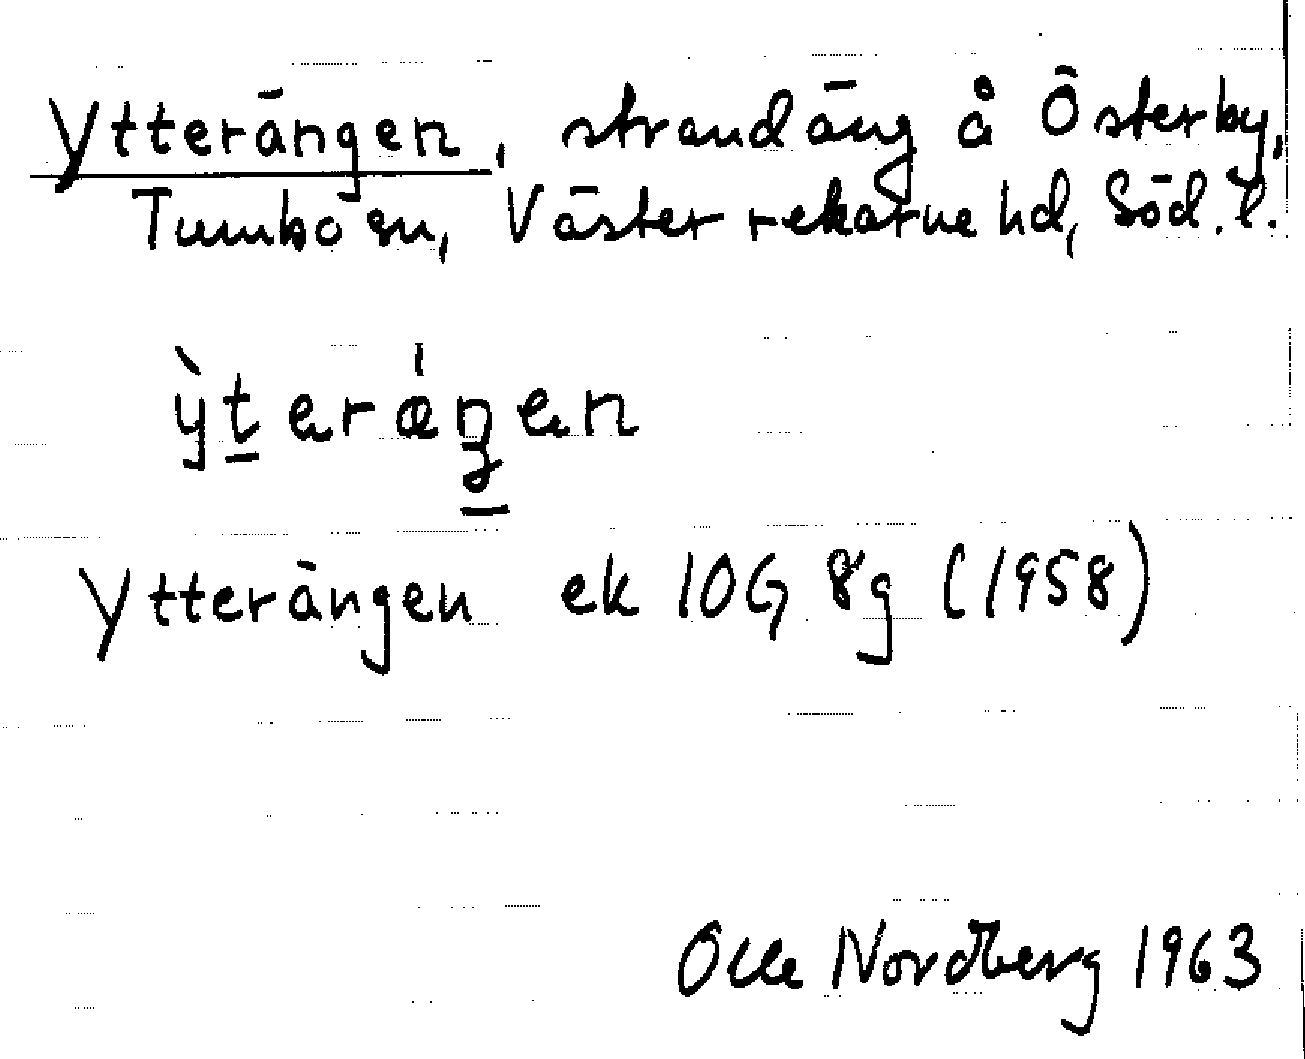 Ytterängen, strandäng å Österby,
Tumbo sn, Väster rekarne hd, Söd. l.
ỳt̲erǽŋ̲en
Ytterängen ek 10G 8g (1958)
Olle Nordberg 1963